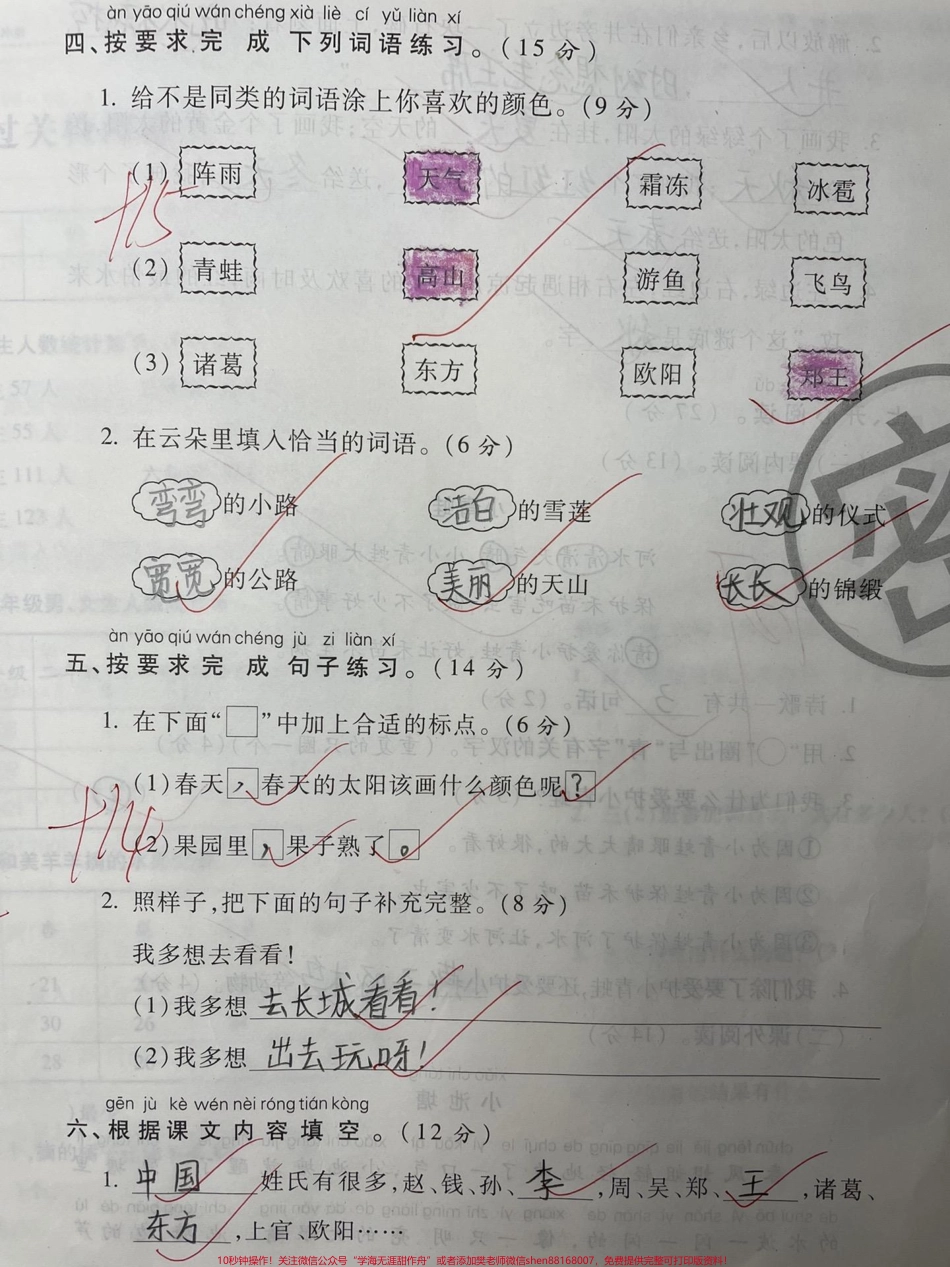 àn yāo qiú wán chéng xià liè cí yǔ liàn xí
四、按要求完成下列词语练习。(15分)
1. 给不是同类的词语涂上你喜欢的颜色。(9分)
+15
(1) 阵雨 天气 霜冻 冰雹
(2) 青蛙 高山 游鱼 飞鸟
(3) 诸葛 东方 欧阳 郑王
2. 在云朵里填入恰当的词语。(6分)
弯弯的小路 洁白的雪莲 壮观的仪式
宽宽的公路 美丽的天山 长长的锦缎
密
àn yāo qiú wán chéng jù zi liàn xí
五、按要求完成句子练习。(14分)
1. 在下面“□”中加上合适的标点。(6分)
(1)春天,春天的太阳该画什么颜色呢?
+14
(2)果园里,果子熟了。
2. 照样子,把下面的句子补充完整。(8分)
我多想去看看!
(1)我多想去长城看看!
(2)我多想出去玩呀!
gēn jù kè wén nèi róng tián kòng
六、根据课文内容填空。(12分)
1. 中国姓氏有很多,赵、钱、孙、李,周、吴、郑、王,诸葛、
东方,上官、欧阳……
10秒钟操作!关注微信公众号“学海无涯甜作舟”或者添加樊老师微信shen88168007,免费提供完整可打印版资料!